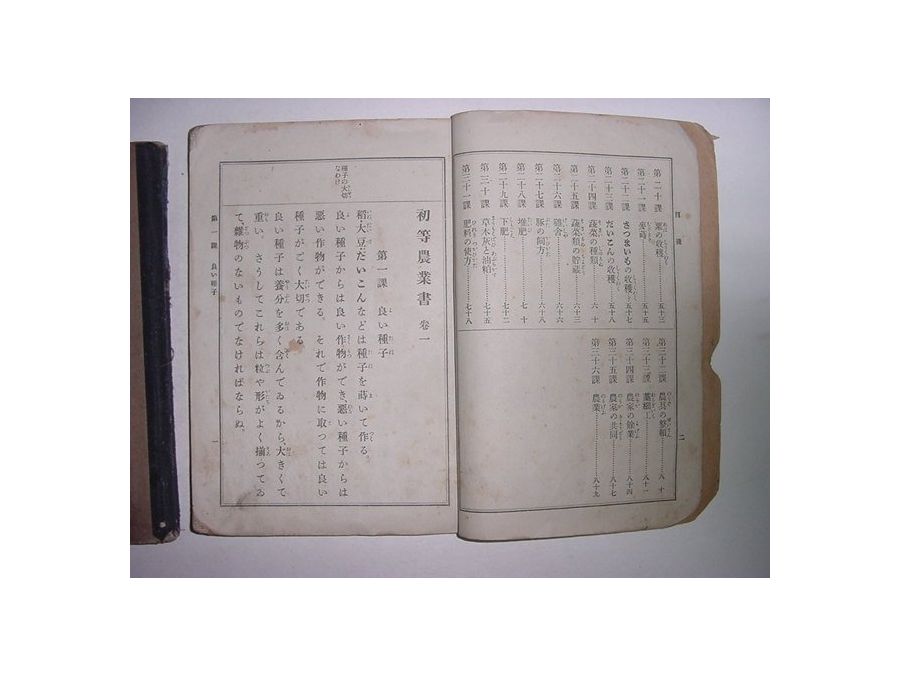 目録
二
第二十課 粟の收穫 五十三
第二十一課 麥蒔 五十五
第二十二課 さつまいもの收穫 五十七
第二十三課 だいこんの收穫
第二十四課 蔬菜の種類 六十
第二十五課 蔬菜類の貯蔵 六十三
第二十六課 鷄舍 六十六
第二十七課 豚の飼方 六十八
第二十八課 堆肥 七十
第二十九課 下肥 七十二
第三十課 草木灰と油粕 七十五
第三十一課 肥料の使方 七十八
第三十二課 農具の整頓 八十
第三十三課 藁細工 八十一
第三十四課 農家の餘業 八十四
第三十五課 農家の共同 八十七
第三十六課 農業 八十九
初等農業書 卷一
第一課 良い種子
種子の大切
なわけ
稻、大豆、だいこんなどは種子を蒔いて作る。
良い種子からは良い作物ができ、惡い種子からは
惡い作物ができる。それで作物に取つては良い
種子がごく大切である。
良い種子は養分を多く含んでゐるから、大きくて
重い。さうしてこれらは粒や形がよく揃つてゐ
て、雜物のないものでなければならぬ。
第一課 良い種子
一